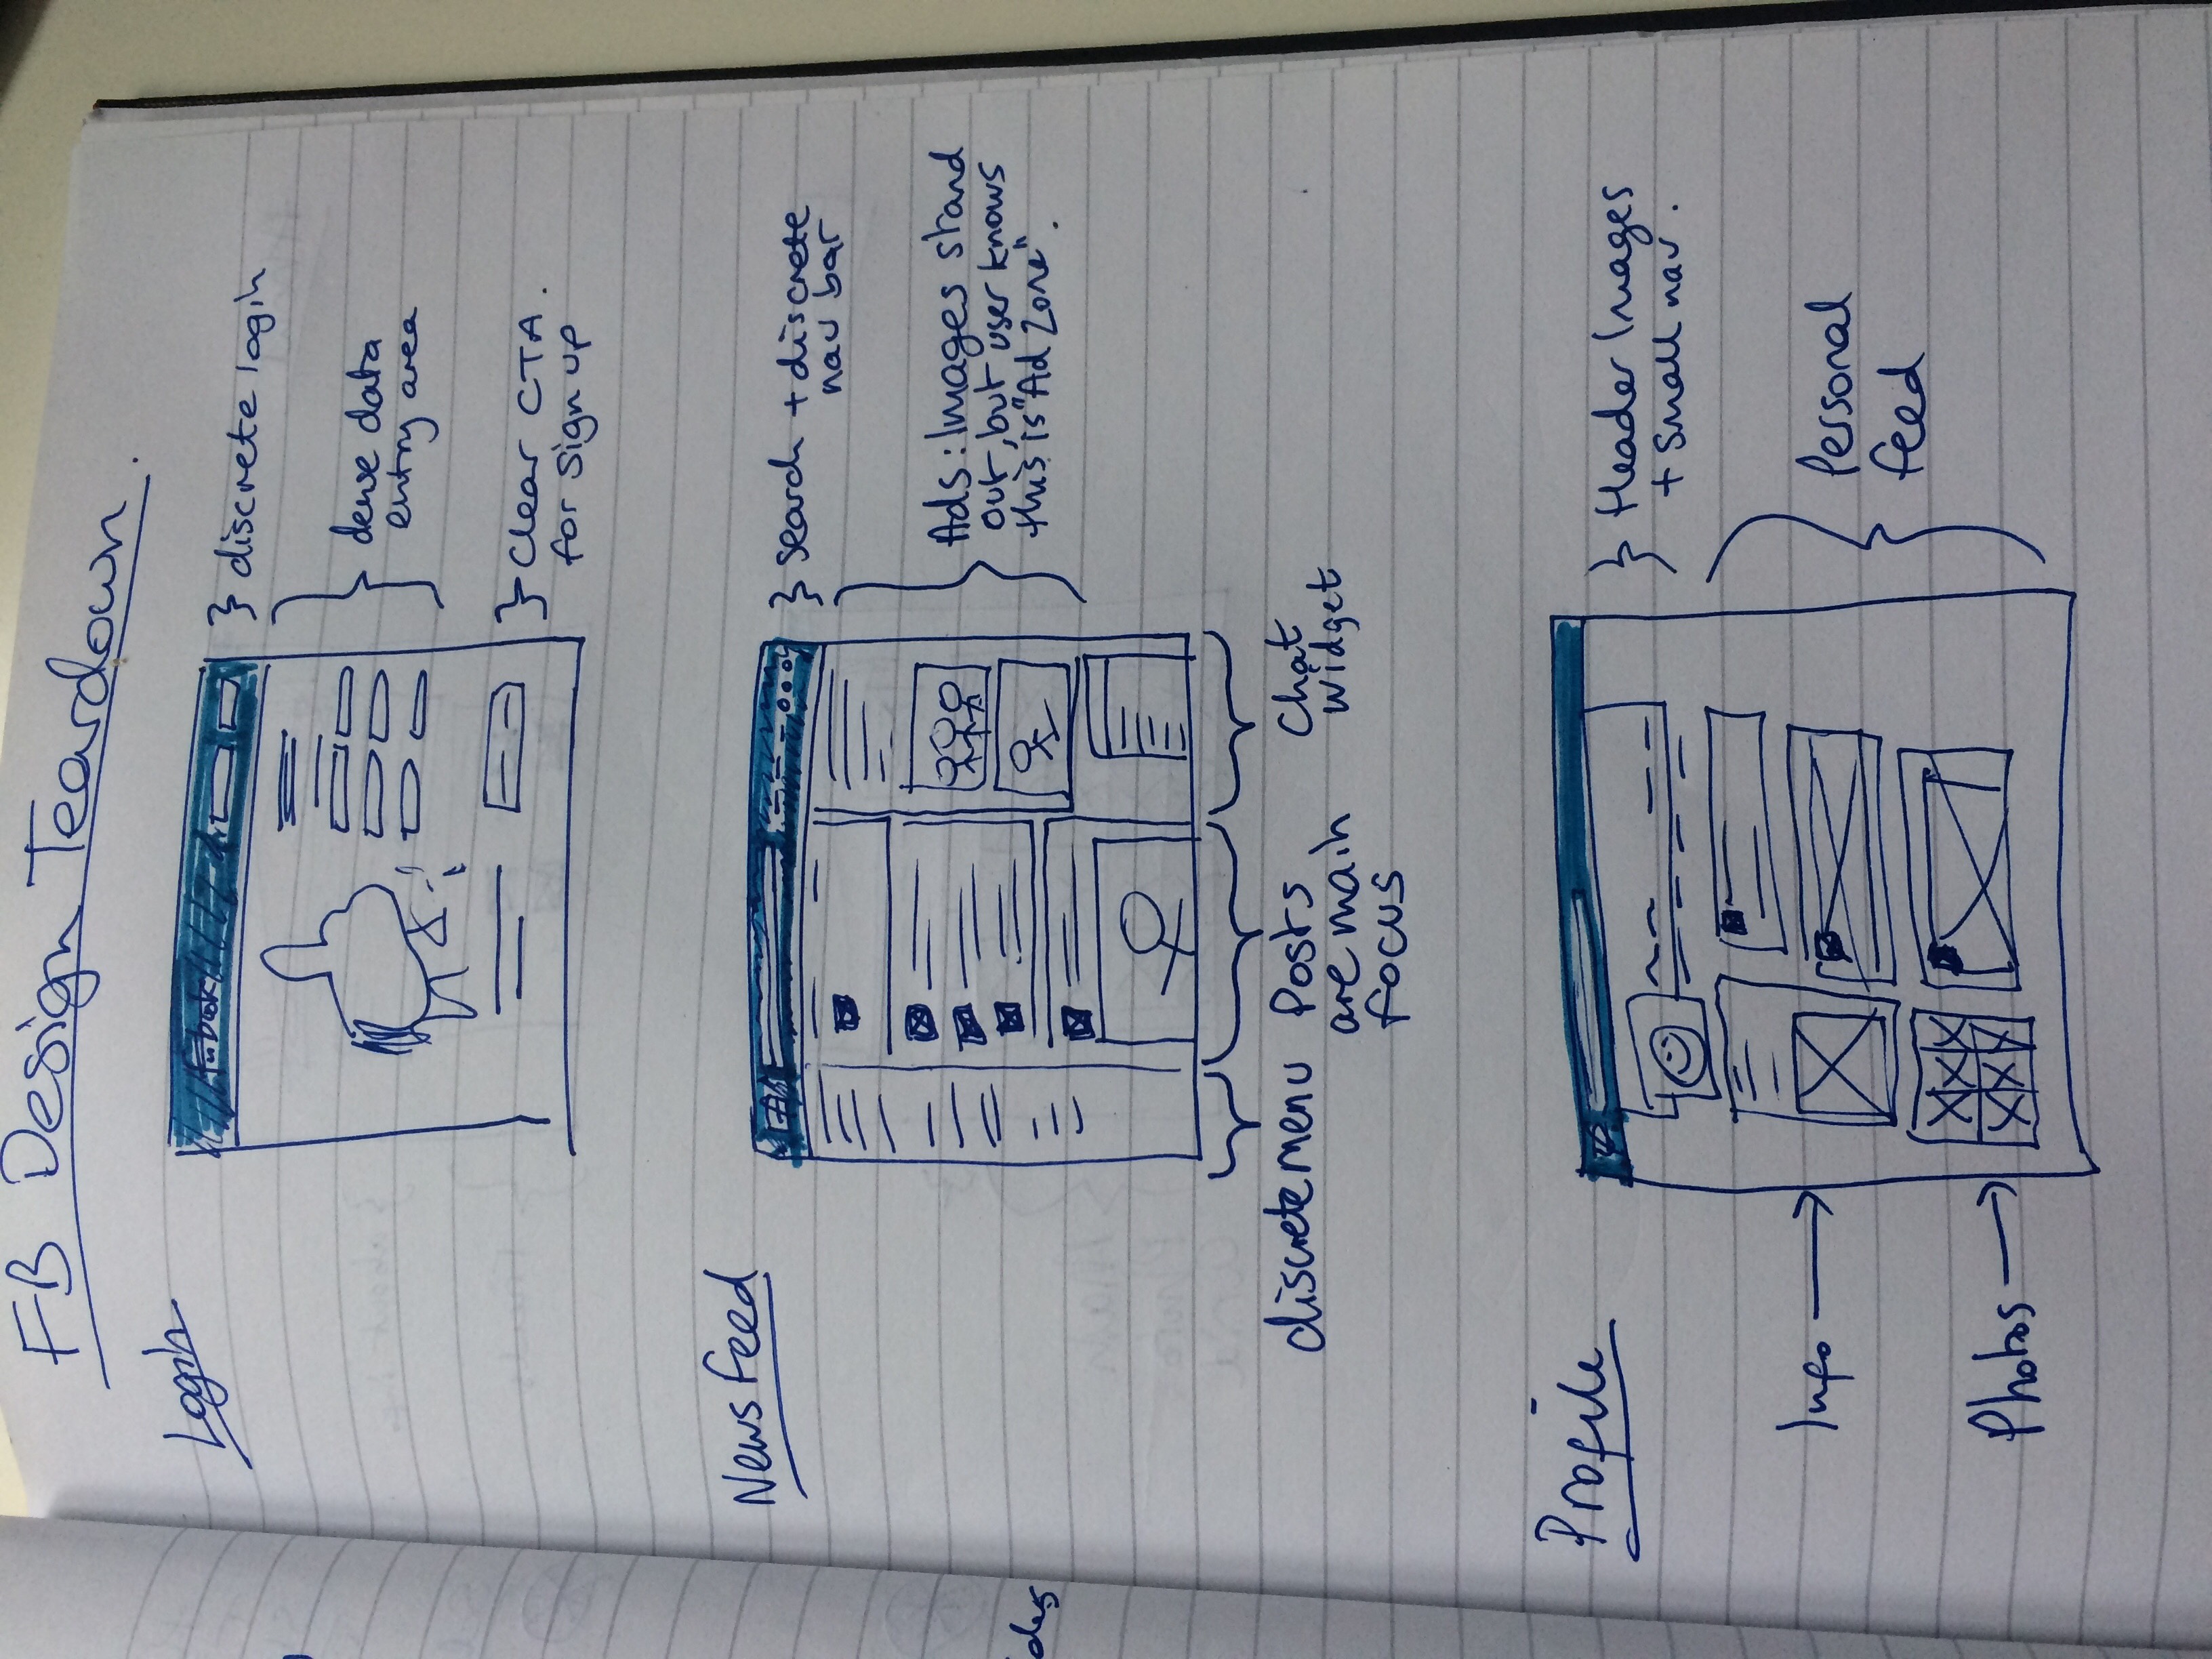 FB Design Teardown.
Login
} discrete login
dense data
entry area
} Clear CTA.
for sign up
News feed
} Search + discrete
nav bar
Ads: Images stand
out, but user knows
this is "Ad Zone".
discrete menu
Posts
are main
focus
Chat
widget
Profile
} Header Images
+ small nav.
Info →
Personal
feed
Photos →